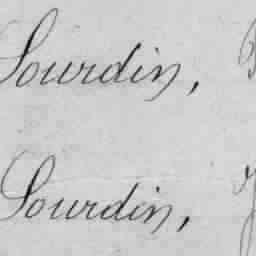 Lourdin,
Lourdin,